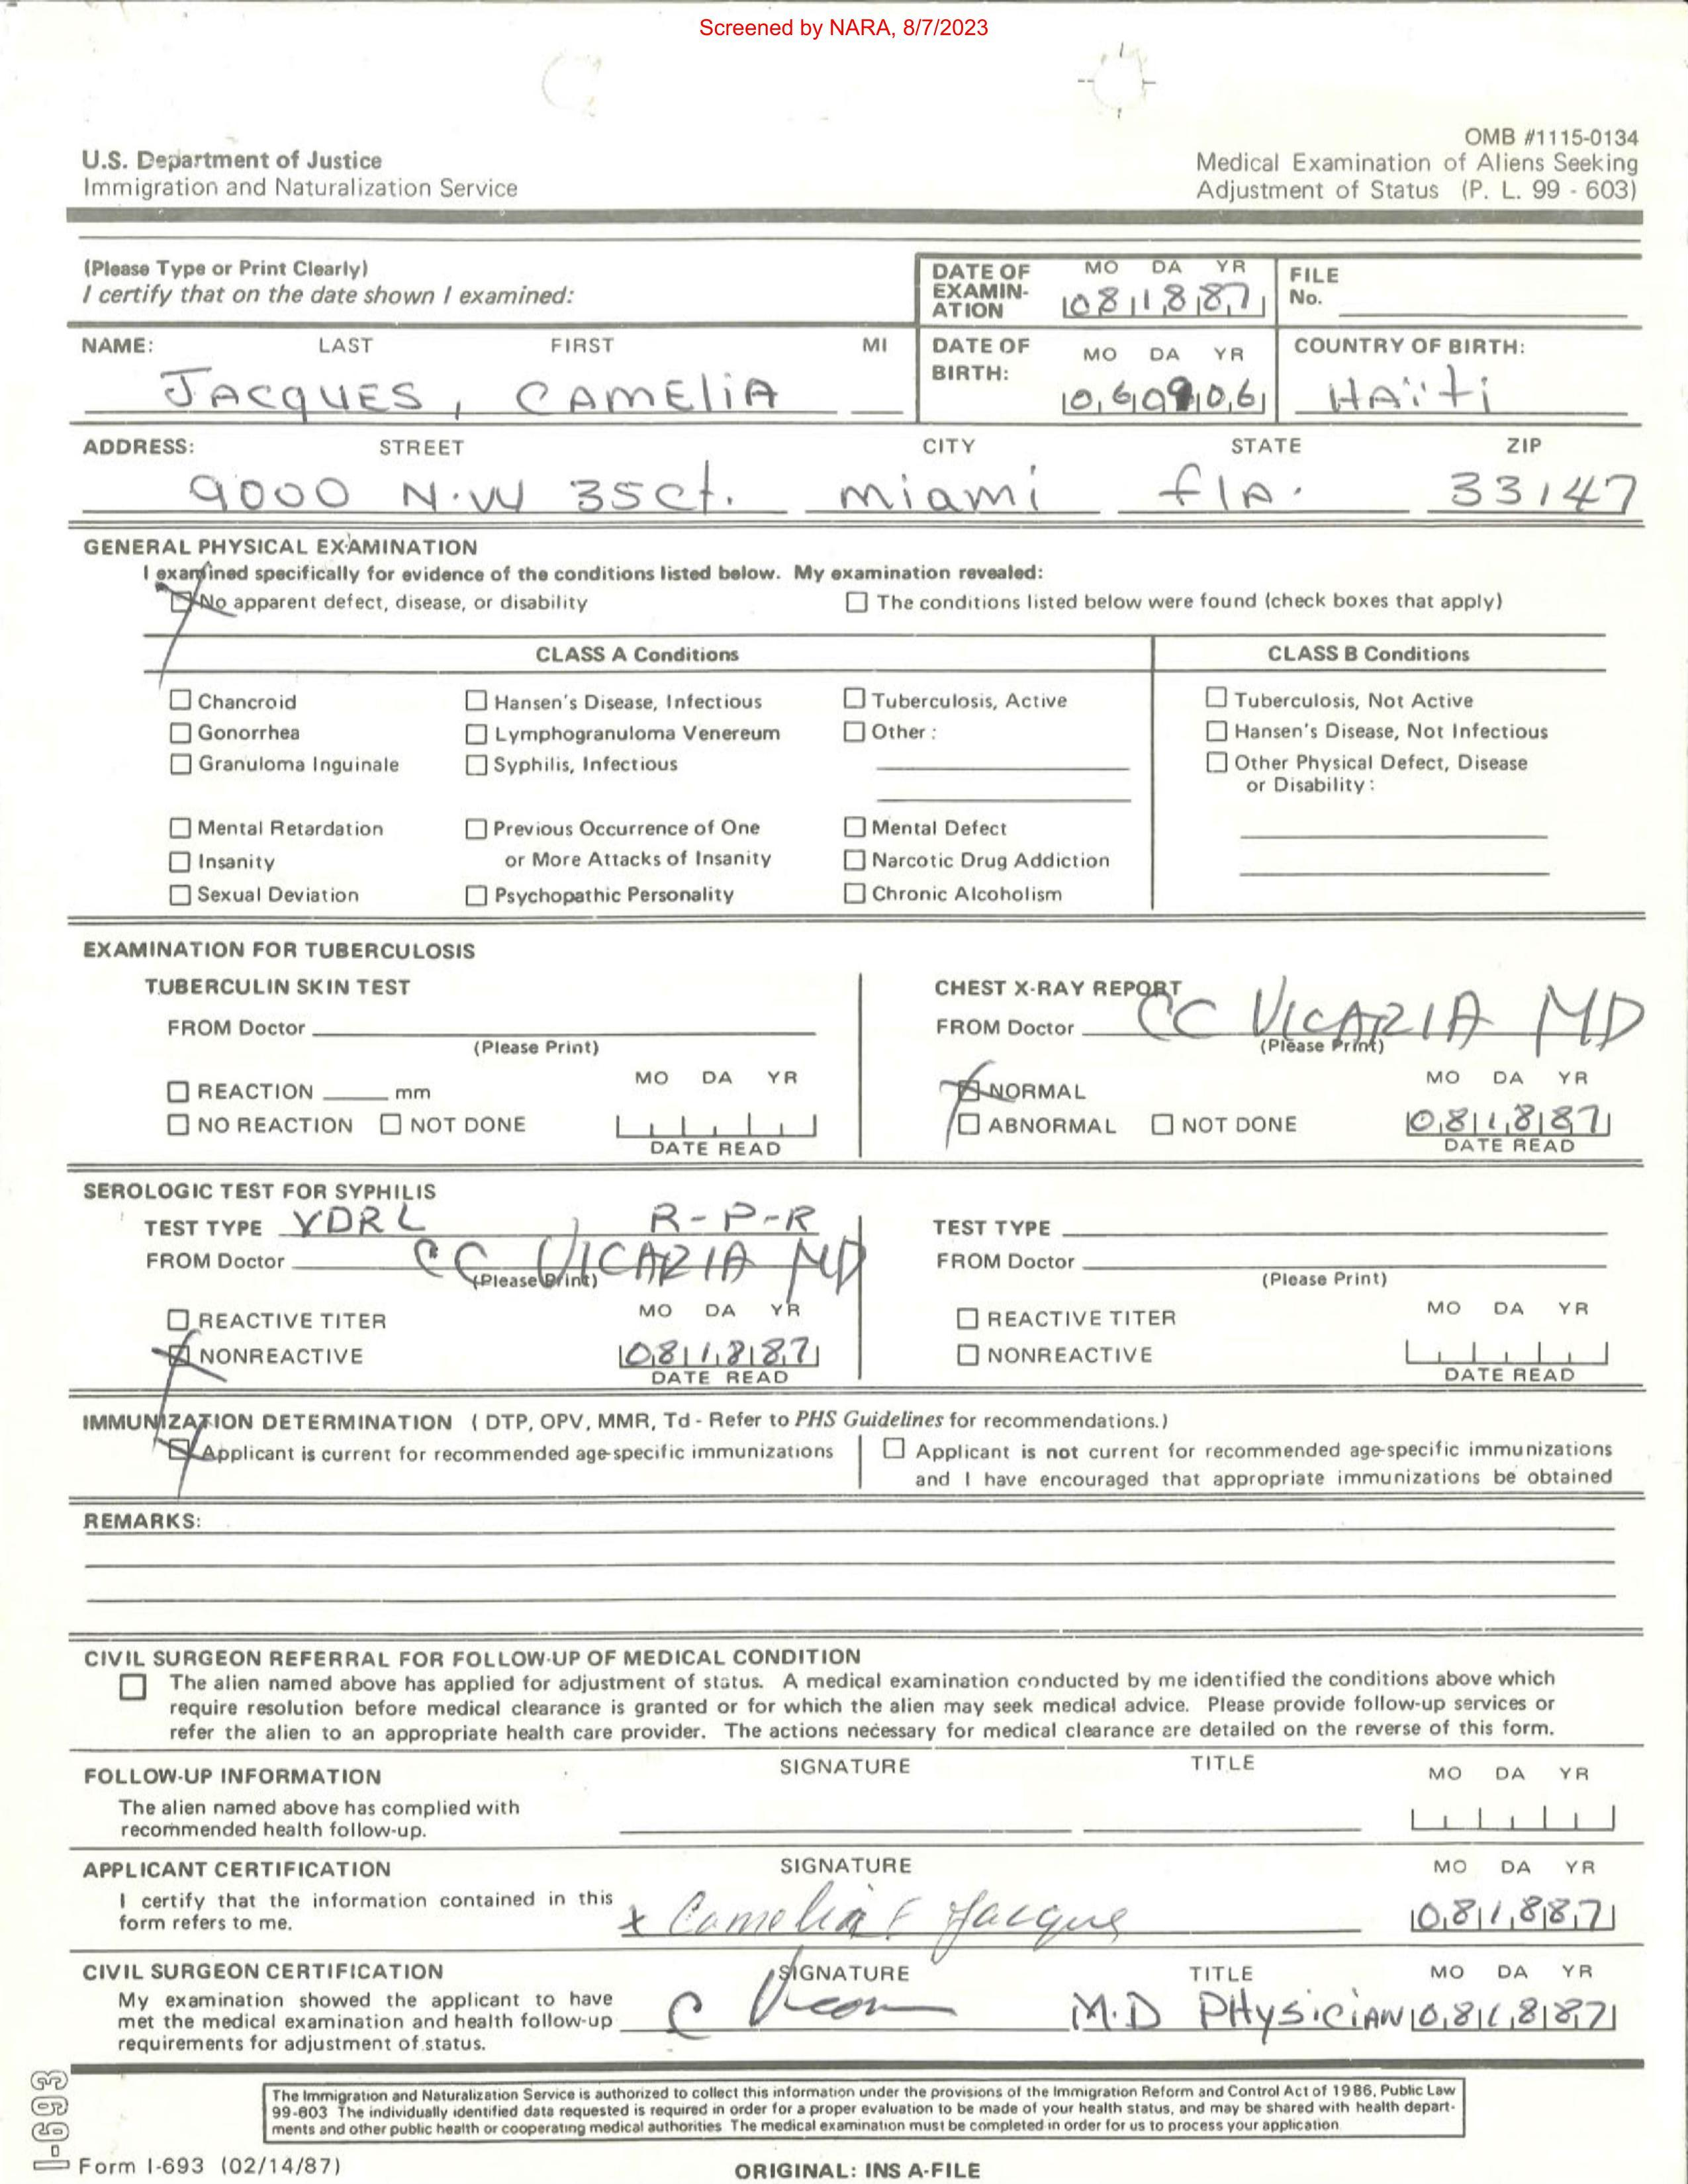 Screened by NARA, 8/7/2023
OMB #1115-0134
U.S. Department of Justice
Medical Examination of Aliens Seeking
Immigration and Naturalization Service
Adjustment of Status (P. L. 99 - 603)
(Please Type or Print Clearly)
I certify that on the date shown I examined:
DATE OF EXAMINATION MO DA YR 08 18 87
FILE No.
NAME: LAST FIRST MI
JACQUES, CAMELIA
DATE OF BIRTH: MO DA YR 06 09 06
COUNTRY OF BIRTH: HAïti
ADDRESS: STREET CITY STATE ZIP
9000 N.W 35ct. miami flA. 33147
GENERAL PHYSICAL EXAMINATION
I examined specifically for evidence of the conditions listed below. My examination revealed:
No apparent defect, disease, or disability
The conditions listed below were found (check boxes that apply)
CLASS A Conditions CLASS B Conditions
Chancroid Hansen's Disease, Infectious Tuberculosis, Active Tuberculosis, Not Active
Gonorrhea Lymphogranuloma Venereum Other: Hansen's Disease, Not Infectious
Granuloma Inguinale Syphilis, Infectious Other Physical Defect, Disease
or Disability:
Mental Retardation Previous Occurrence of One Mental Defect
Insanity or More Attacks of Insanity Narcotic Drug Addiction
Sexual Deviation Psychopathic Personality Chronic Alcoholism
EXAMINATION FOR TUBERCULOSIS
TUBERCULIN SKIN TEST
FROM Doctor
(Please Print)
MO DA YR
REACTION mm
NO REACTION NOT DONE
DATE READ
CHEST X-RAY REPORT
FROM Doctor CC VICARIA MD
(Please Print)
MO DA YR
NORMAL
ABNORMAL NOT DONE 08 18 87
DATE READ
SEROLOGIC TEST FOR SYPHILIS
TEST TYPE VDRL R-P-R
FROM Doctor CC VICARIA MD
(Please Print)
REACTIVE TITER MO DA YR
NONREACTIVE 08 18 87
DATE READ
TEST TYPE
FROM Doctor
(Please Print)
REACTIVE TITER MO DA YR
NONREACTIVE
DATE READ
IMMUNIZATION DETERMINATION (DTP, OPV, MMR, Td - Refer to PHS Guidelines for recommendations.)
Applicant is current for recommended age-specific immunizations
Applicant is not current for recommended age-specific immunizations
and I have encouraged that appropriate immunizations be obtained
REMARKS:
CIVIL SURGEON REFERRAL FOR FOLLOW-UP OF MEDICAL CONDITION
The alien named above has applied for adjustment of status. A medical examination conducted by me identified the conditions above which
require resolution before medical clearance is granted or for which the alien may seek medical advice. Please provide follow-up services or
refer the alien to an appropriate health care provider. The actions necessary for medical clearance are detailed on the reverse of this form.
FOLLOW-UP INFORMATION SIGNATURE TITLE MO DA YR
The alien named above has complied with
recommended health follow-up.
APPLICANT CERTIFICATION SIGNATURE MO DA YR
I certify that the information contained in this
form refers to me.
x Camelia Jacque 08 18 87
CIVIL SURGEON CERTIFICATION SIGNATURE TITLE MO DA YR
My examination showed the applicant to have
met the medical examination and health follow-up
requirements for adjustment of status.
M.D PHysiciAN 08 18 87
The Immigration and Naturalization Service is authorized to collect this information under the provisions of the Immigration Reform and Control Act of 1986, Public Law
99-603 The individually identified data requested is required in order for a proper evaluation to be made of your health status, and may be shared with health depart-
ments and other public health or cooperating medical authorities The medical examination must be completed in order for us to process your application
I-693
Form I-693 (02/14/87)
ORIGINAL: INS A-FILE